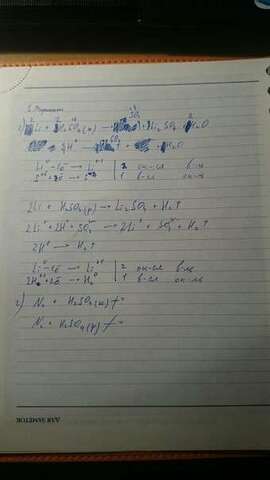 1) 2Li + 2H₂SO₄(к) → SO₂ + Li₂SO₄ + 2H₂O
Li⁰ -1e → Li⁺¹ | 2 ок-ся в-ль
S⁺⁶ +2e → S⁺⁴ | 1 в-ся ок-ль
2Li + H₂SO₄(р) → Li₂SO₄ + H₂↑
2Li + 2H⁺ + SO₄ → 2Li⁺ + SO₄ + H₂↑
2H⁺ → H₂↑
Li⁰ -1e → Li⁺¹ | 2 ок-ся в-ль
2H⁺ +2e → H₂⁰ | 1 в-ся ок-ль
2) N₂ + H₂SO₄(к) ≠
N₂ + H₂SO₄(р) ≠
ДЛЯ ЗАМЕТОК